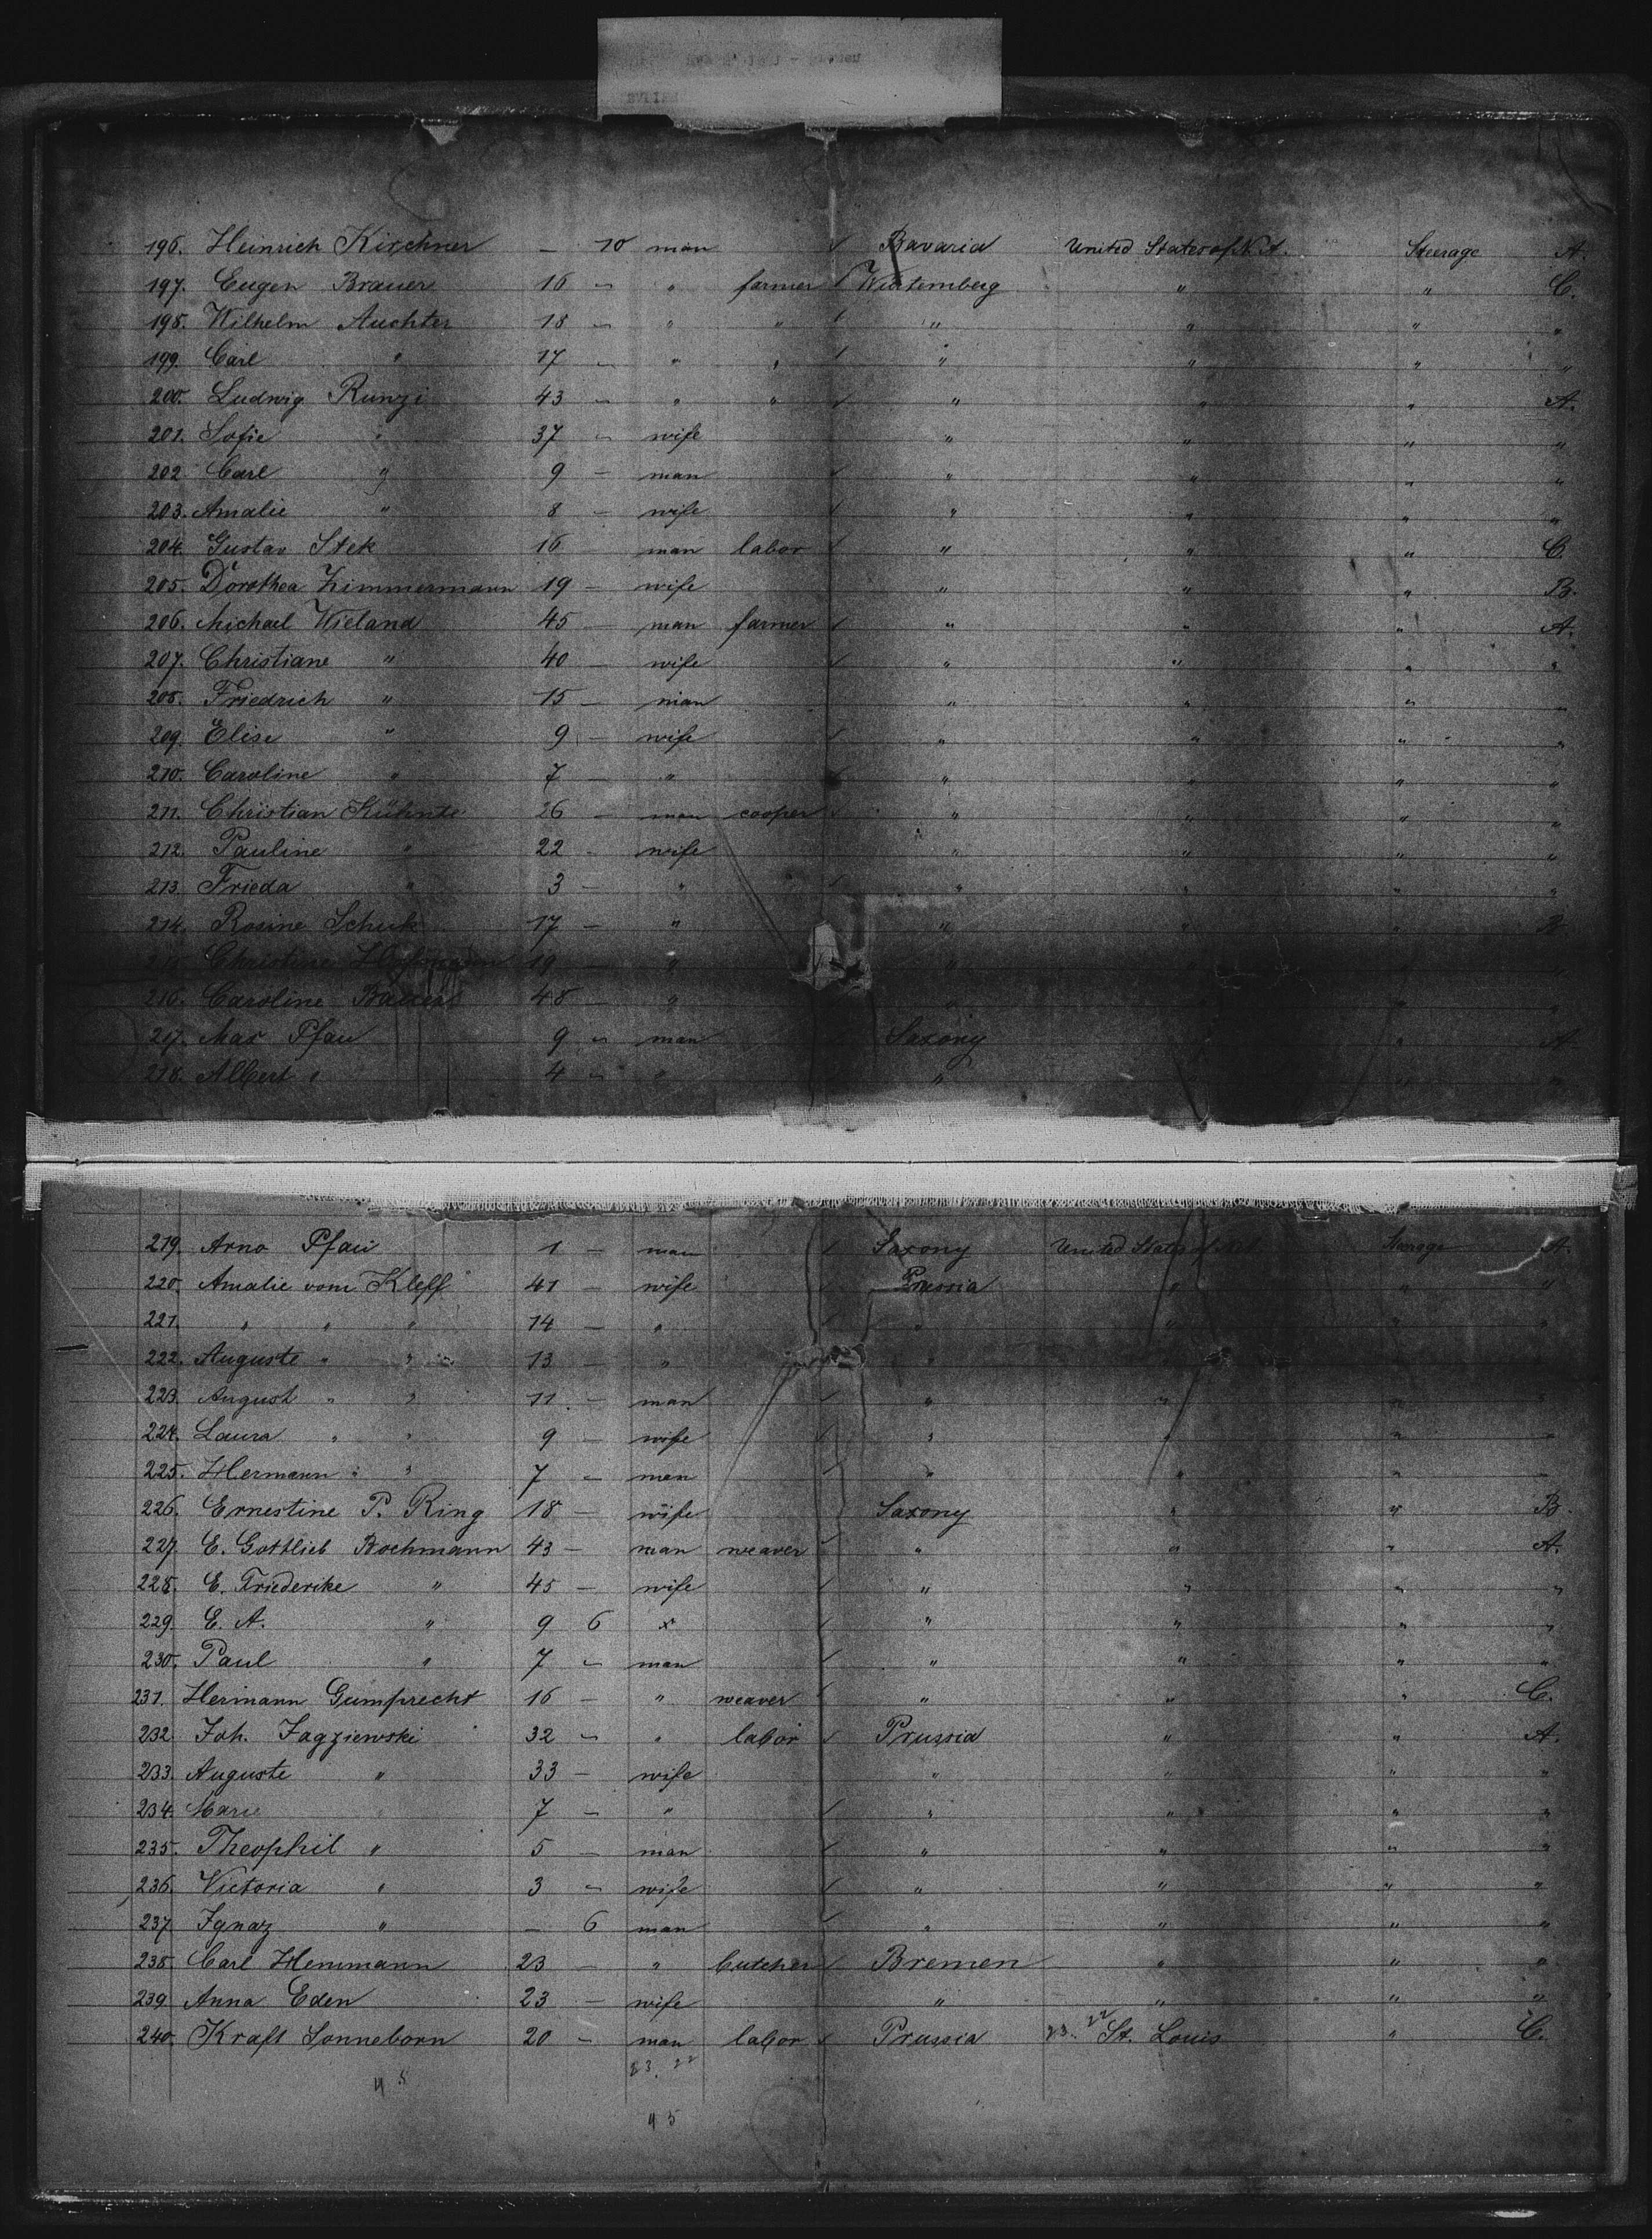 196. Heinrich Kirchner — 10 man ✓ Bavaria United States of N. A. Steerage A.
197. Eugen Brauer 16 — " farmer ✓ Würtemberg " " C.
198. Wilhelm Auchter 18 — " " ✓ " " " "
199. Carl " 17 — " " ✓ " " " "
200. Ludwig Runzi 43 — " " ✓ " " " A.
201. Sofie " 37 — wife " " " "
202. Carl " 9 — man ✓ " " " "
203. Amalie " 8 — wife ✓ " " " "
204. Gustav Stek 16 man labor ✓ " " " C.
205. Dorothea Zimmermann 19 — wife " " " B.
206. Michael Wieland 45 — man farmer ✓ " " " A.
207. Christiane " 40 — wife ✓ " " " "
208. Friedrich " 15 — man " " " "
209. Elise " 9 — wife ✓ " " " "
210. Caroline " 7 — " ✓ " " " "
211. Christian 26 — man cooper ✓ " " " "
212. Pauline " 22 — wife " " " "
213. Frieda " 3 — " ✓ " " " "
214. Rosine Schuk 17 — " " " " B.
215. Christine 19 — " " " " "
216. Caroline Bauer 48 — " " " " "
217. Max Pfau 9 — man Saxony " " A.
218. Albert " 4 — " " " " "
219. Arno Pfau 1 — man ✓ Saxony United States of N. A. Steerage A.
220. Amalie vom Kleff 41 — wife ✓ Prussia " " "
221. " " " 14 — " ✓ " " " "
222. Auguste " " 13 — " " " " "
223. August " " 11 — man ✓ " " " "
224. Laura " " 9 — wife ✓ " " " "
225. Hermann " " 7 — man ✓ " " " "
226. Ernestine P. Ring 18 — wife Saxony " " B.
227. E. Gottlieb Bochmann 43 — man weaver ✓ " " " A.
228. E. Friederike " 45 — wife ✓ " " " "
229. E. A. " 9 6 x ✓ " " " "
230. Paul " 7 — man ✓ " " " "
231. Hermann Gumprecht 16 — " weaver ✓ " " " C.
232. Joh. Jagziewski 32 — " labor ✓ Prussia " " A.
233. Auguste " 33 — wife " " " "
234. Marie " 7 — " ✓ " " " "
235. Theophil " 5 — man ✓ " " " "
236. Victoria " 3 — wife ✓ " " " "
237. Ignaz " — 6 man ✓ " " " "
238. Carl Hemmann 23 — " butcher ✓ Bremen " " "
239. Anna Eden 23 — wife " " " "
240. Kraft Sonneborn 20 — man labor ✓ Prussia 23. 22 St. Louis " C.
23. 22
45
45